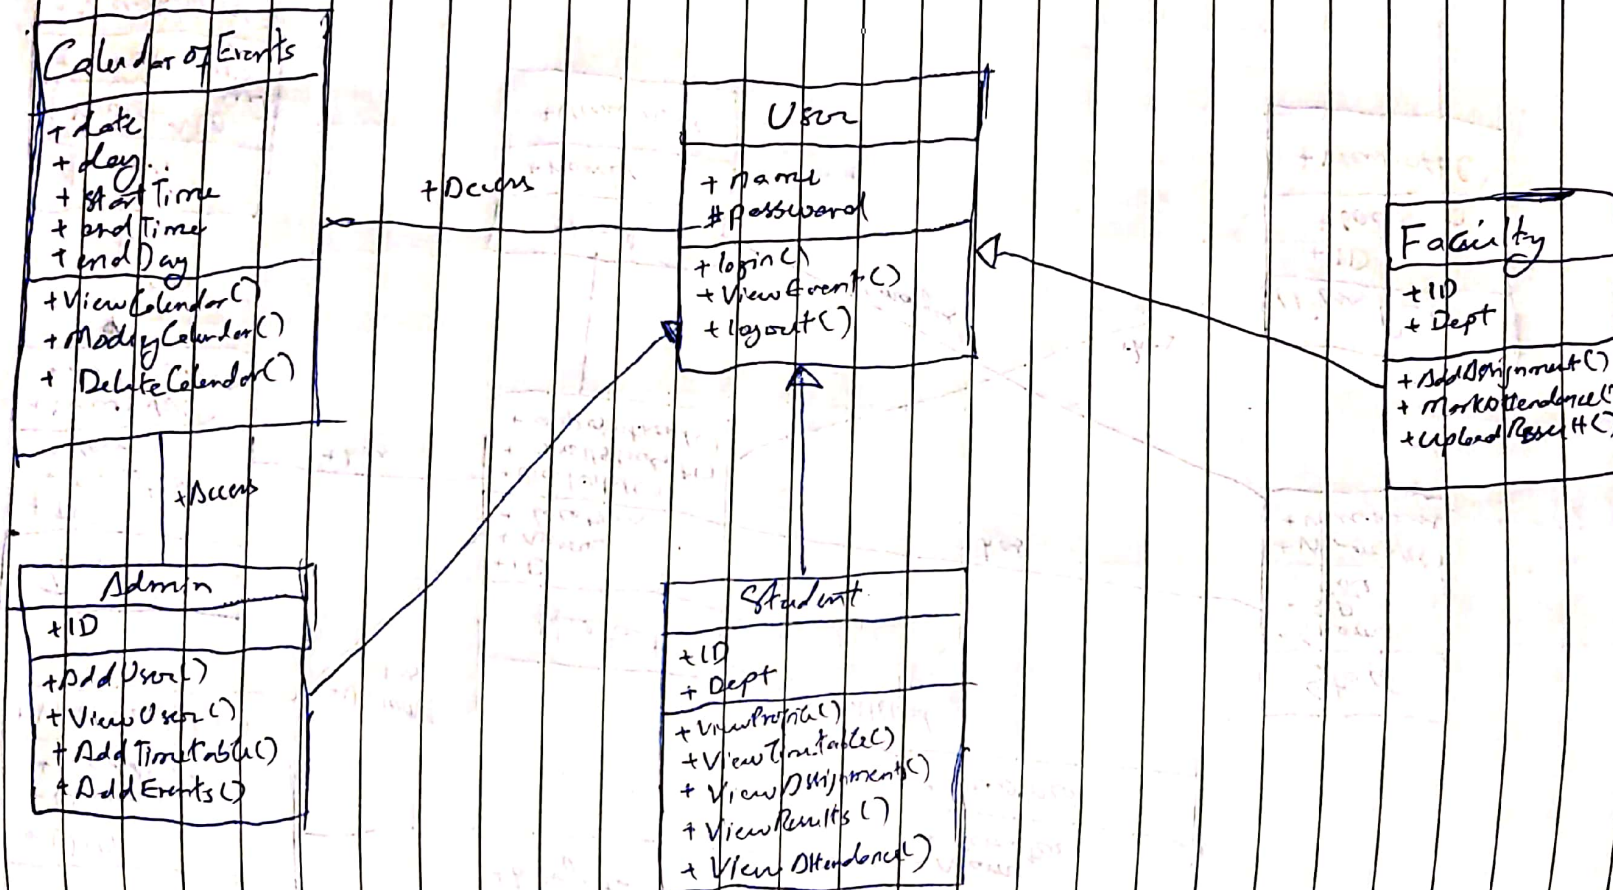 Calendar of Events
+ date
+ day
+ startTime
+ endTime
+ endDay
+ViewCalendar()
+ModifyCalendar()
+ DeleteCalendar()
+Access
+Access
User
+ name
#password
+login()
+ViewEvent()
+logout()
Faculty
+ID
+ Dept
+AddAssignment()
+ MarkAttendance()
+UploadResult()
Admin
+ID
+AddUser()
+ViewUser()
+AddTimetable()
+AddEvents()
Student
+ID
+ Dept
+ViewProfile()
+ViewTimetable()
+ ViewAssignment()
+ ViewResults()
+ ViewAttendance()